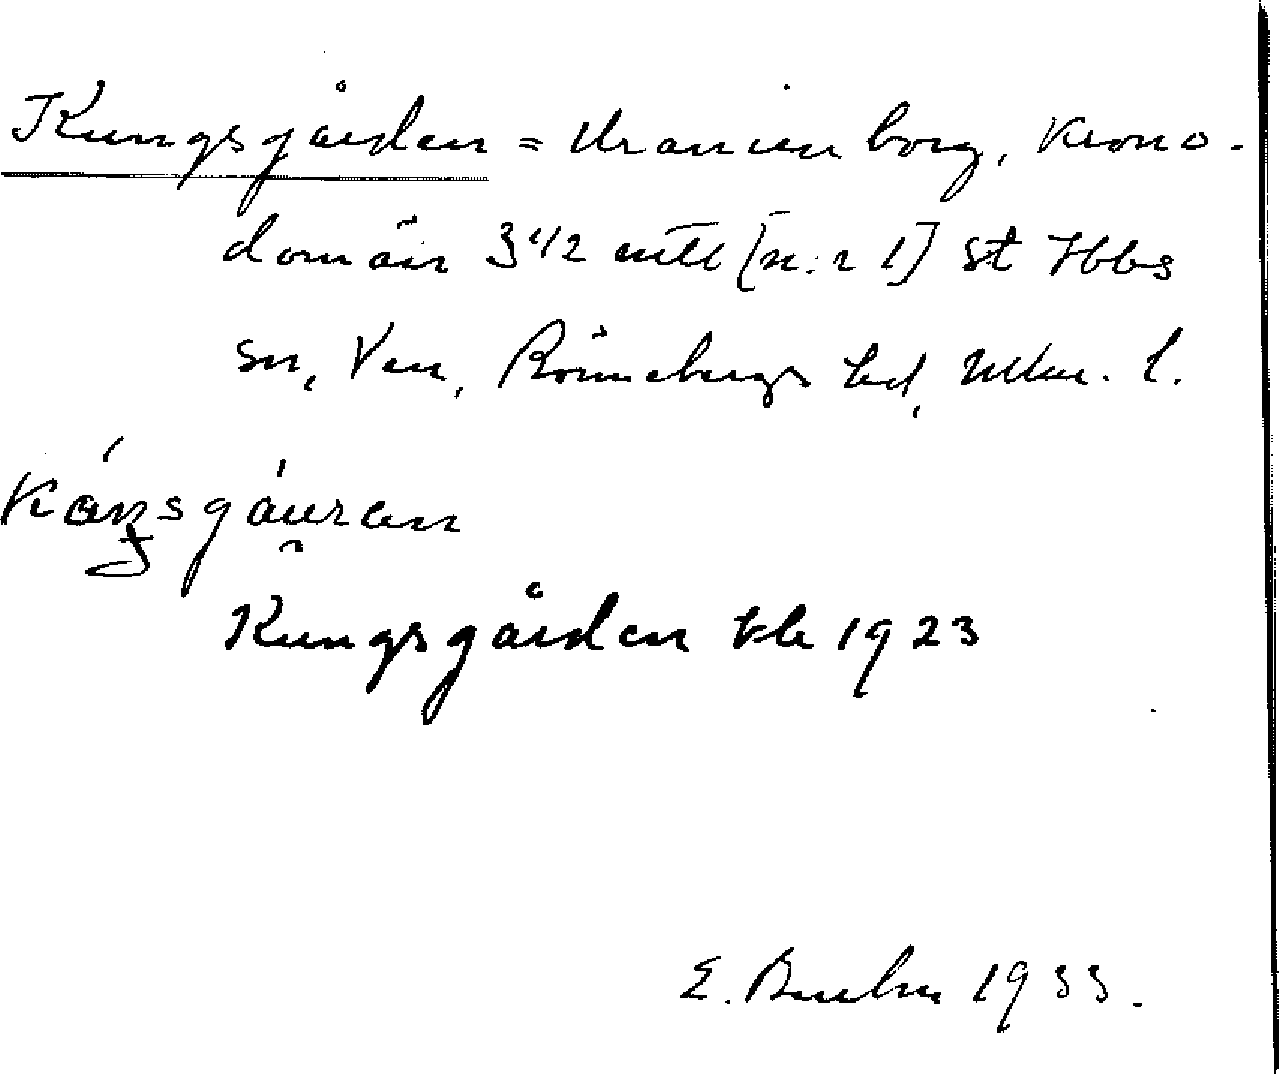 Kungsgården = Uranienborg, krono-
domän 3 1/2 mtl [n:r 1] St Ibbs
sn, Ven, Rönnebergs hd, Mlm. l.
Kungsgården tk 1923
E. 1933.